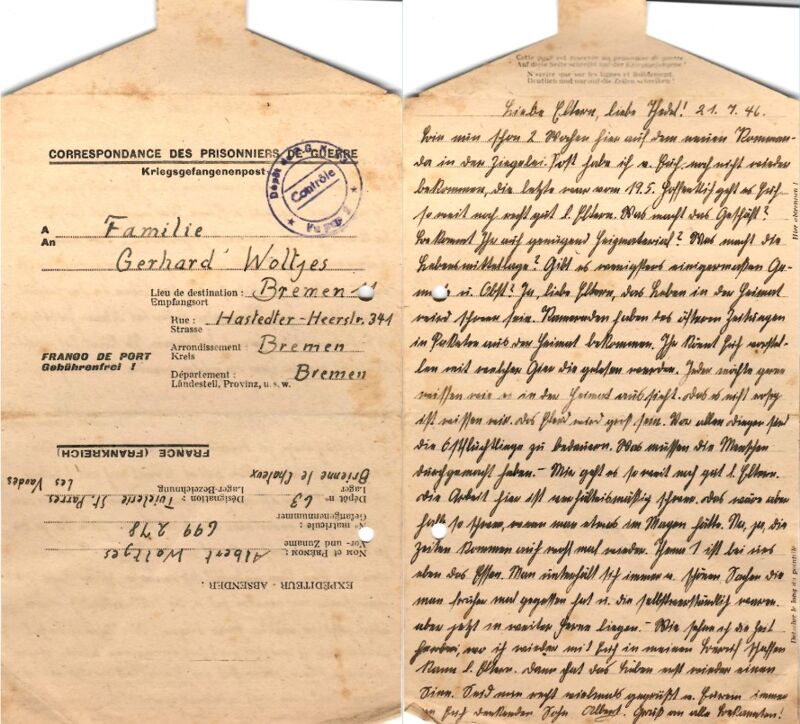 CORRESPONDANCE DES PRISONNIERS DE GUERRE
Kriegsgefangenenpost
Contrôle
A
An
Familie
Gerhard Woltjes
Lieu de destination : Bremen 11
Empfangsort
Rue : Hastedter-Heerstr. 341
Strasse
FRANCO DE PORT
Gebührenfrei !
Arrondissement : Bremen
Kreis
Département : Bremen
Landesteil, Provinz, u. s. w.
FRANCE (FRANKREICH)
Brienne le Chateux
Les Vaudes
Dépôt nº 63 Désignation : Tuielerie St. Parres
Lager-Bezeichnung
Nº matricule : 699 278
Gefangenennummer
Nom et Prénom : Albert Woltjes
Vor- und Zuname
EXPÉDITEUR - ABSENDER :
Cette page est réservée au prisonnier de guerre
Auf diese Seite schreibt nur der Kriegsgefangene !
N'écrire que sur les lignes et lisiblement.
Deutlich und nur auf die Zeilen schreiben !
Liebe Eltern, liebe Thedi! 21.7.46.
Bin nun schon 2 Wochen hier auf dem neuen Komman-
do in der Ziegelei. Post habe ich v. Euch noch nicht wieder
bekommen, die letzte war vom 19.5. Hoffentlich geht es Euch
so weit noch recht gut l. Eltern. Was macht das Geschäft?
Bekommt Ihr auch genügend Heizmaterial? Was macht die
Lebensmittellage? Gibt es wenigstens einigermaßen Ge-
müse u. Obst? Ja, liebe Eltern, das Leben in der Heimat
wird schwer sein. Kameraden haben des öfteren Zeitungen
in Paketen aus der Heimat bekommen. Ihr könnt Euch vorstel-
len mit welcher Gier die gelesen werden. Jeder möchte gern
wissen wie es in der Heimat aussieht. Das es nicht rosig
ist wissen wir. Das Elend wird groß sein. Vor allen Dingen sind
die Ostflüchtlinge zu bedauern. Was müssen die Menschen
durchgemacht haben. - Mir geht es so weit noch gut l. Eltern.
Die Arbeit hier ist verhältnismäßig schwer. Das wäre aber
halb so schwer, wenn man etwas im Magen hätte. Na, ja, die
Zeiten kommen auch noch mal wieder. Thema 1 ist bei uns
eben das Essen. Man unterhält sich immer v. schönen Sachen die
man früher mal gegessen hat u. die selbstverständlich waren
aber jetzt in weiter Ferne liegen. - Wie sehne ich die Zeit
herbei, wo ich wieder mit Euch in meinem Beruf schaffen
kann l. Eltern. Dann hat das Leben erst wieder einen
Sinn. Seid nun recht vielmals gegrüßt v. Eurem immer
an Euch denkenden Sohn Albert. Gruß an alle Bekannten!